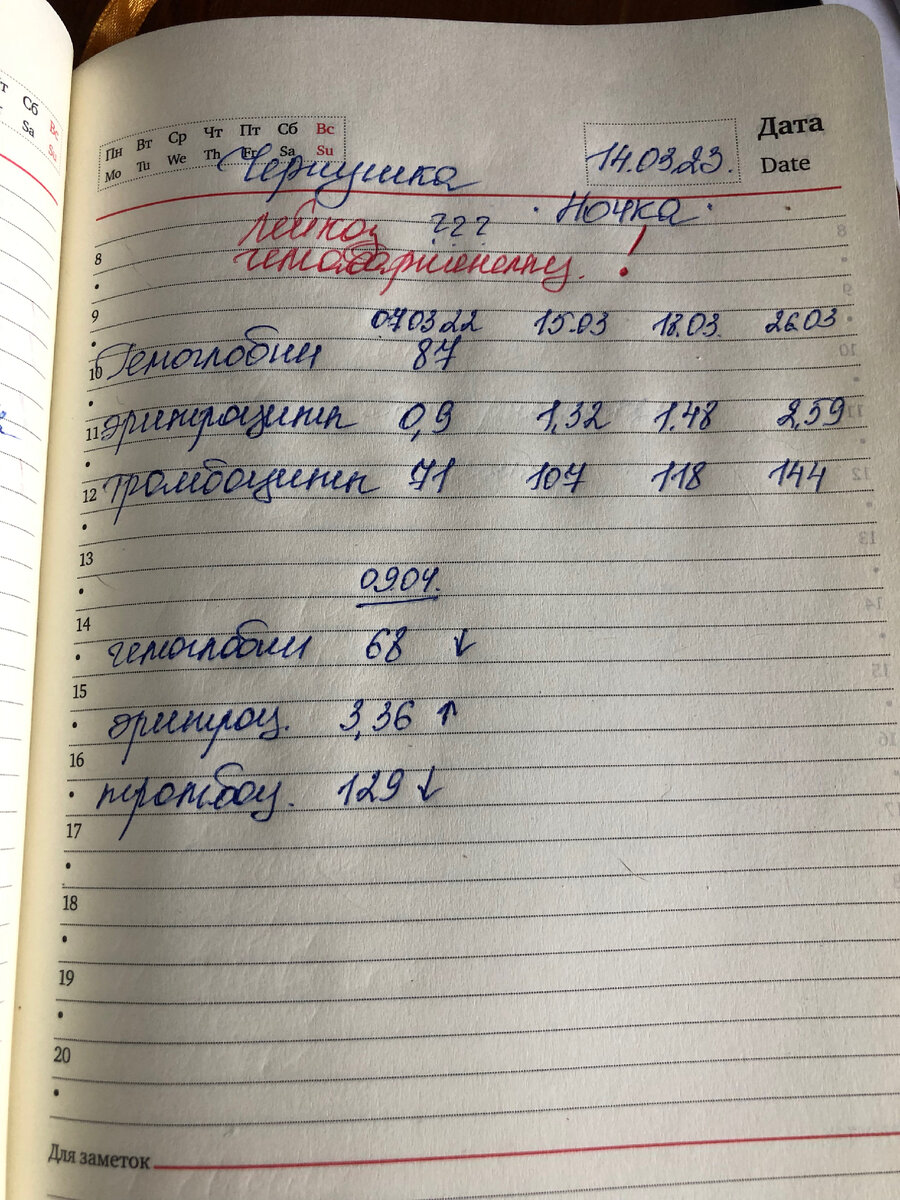 Пн Вт Ср Чт Пт Сб Вс
Mo Tu We Th Fr Sa Su
Дата
Date
14.03.23.
Чернушка
Ночка
лейкоз ???
8
!
9
07.03.22 15.03 18.03. 26.03
10 Гемоглобин 87
11 эритроциты 0,9 1,32 1,48 2,59
12 тромбоциты 71 107 118 144
13
09.04.
14
гемоглобин 68 ↓
15
эритроц. 3,36 ↑
16
тромбоц. 129 ↓
17
18
19
20
Для заметок
т Сб Вс
Sa Su